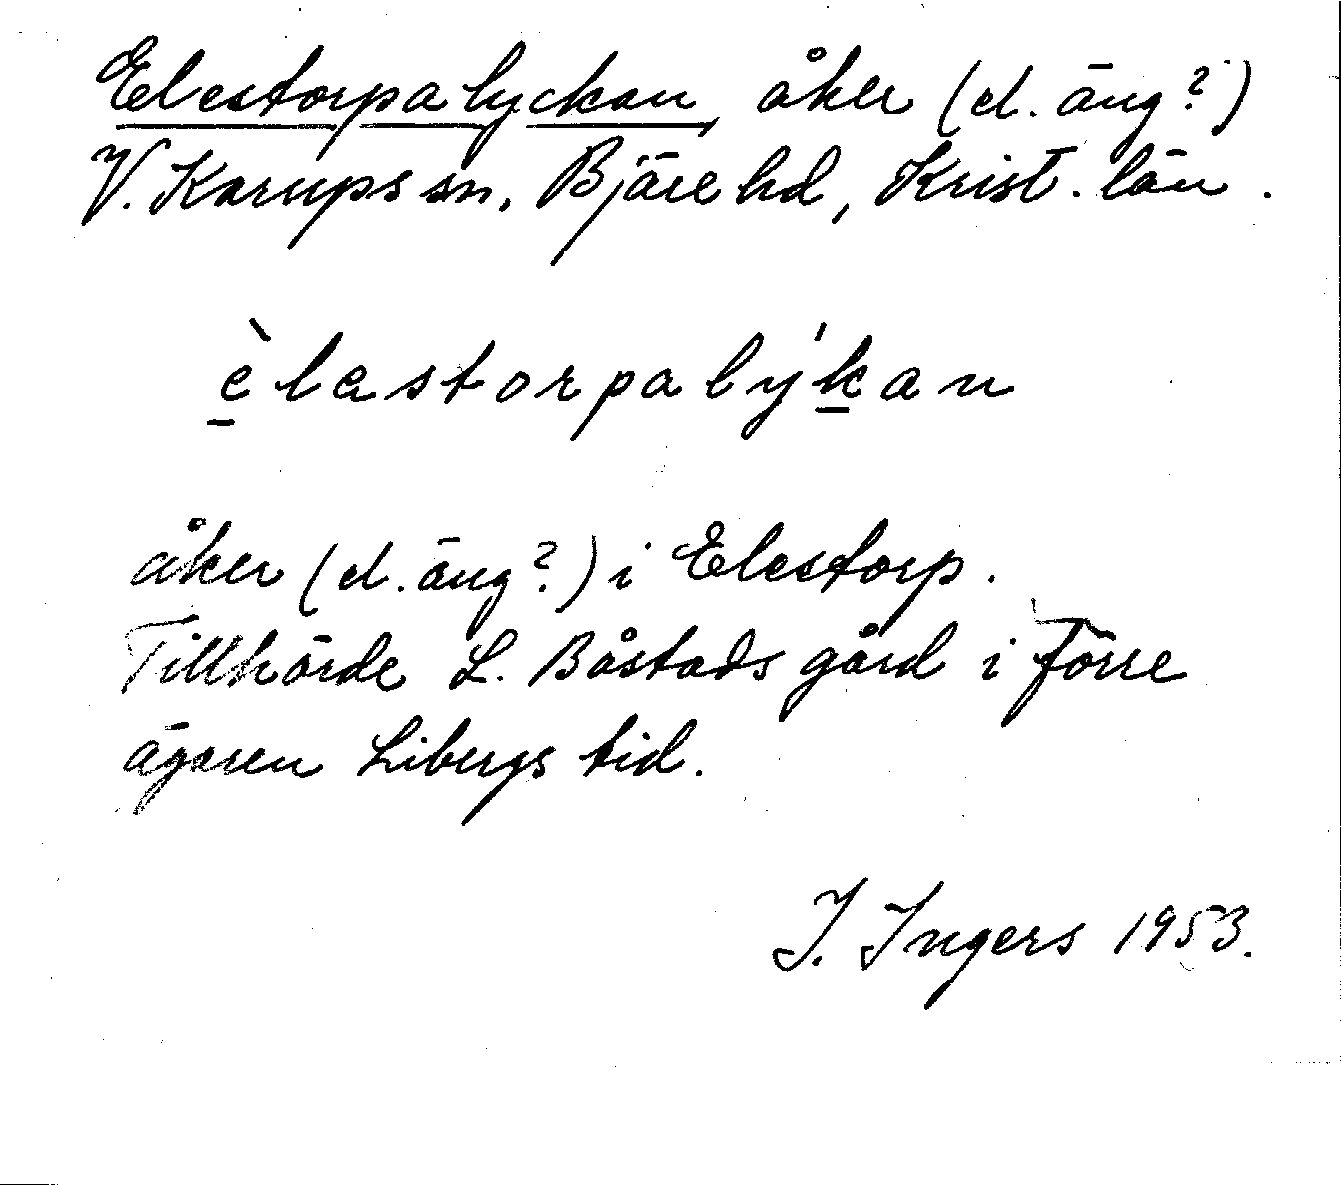 Elestorpalyckan, åker (el. äng?)
V. Karups sn, Bjäre hd, Krist. län.
èlastorpalýkan
åker (el. äng?) i Elestorp.
Tillhörde L. Båstads gård i förre
ägaren Libergs tid.
I. Ingers 1953.